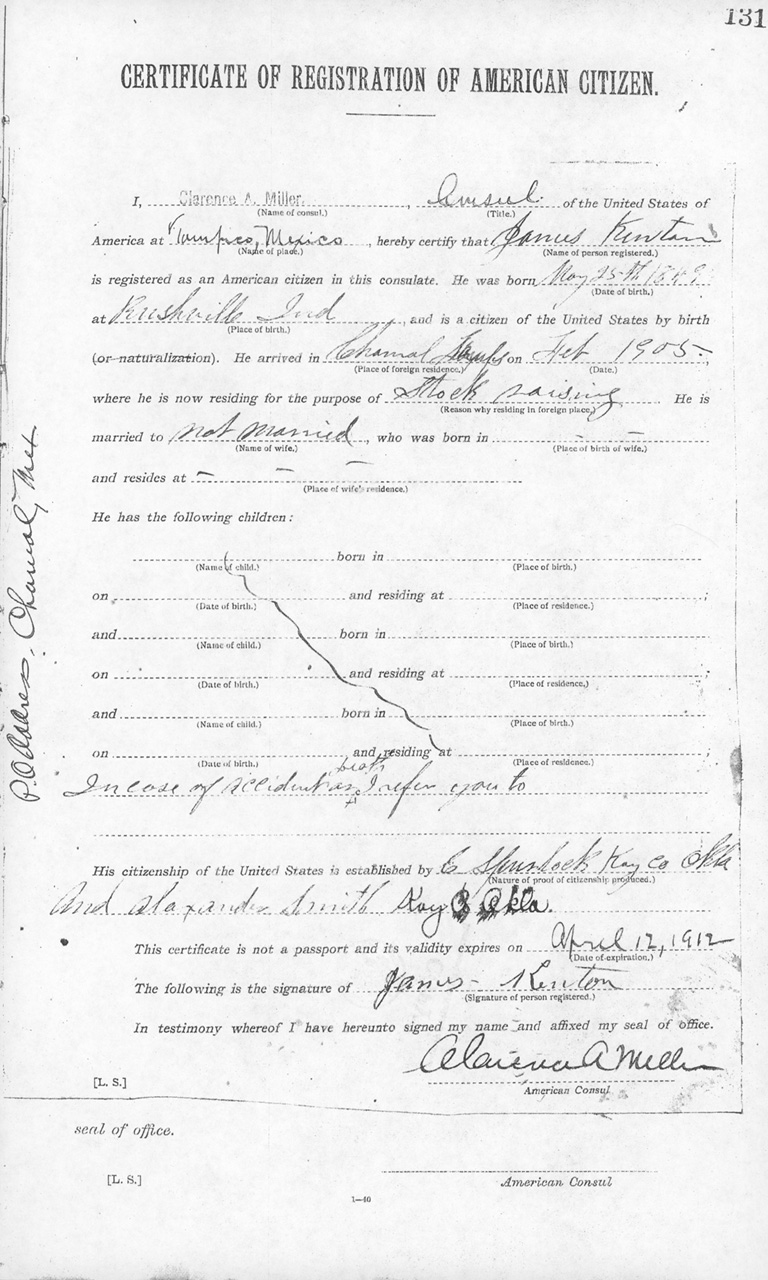 131
CERTIFICATE OF REGISTRATION OF AMERICAN CITIZEN.
I, Clarence A. Miller. , Consul of the United States of
(Name of consul.) (Title.)
America at Tampico, Mexico , hereby certify that James Kenton
(Name of place.) (Name of person registered.)
is registered as an American citizen in this consulate. He was born May 25th 1849
(Date of birth.)
at Rushville Ind , and is a citizen of the United States by birth
(Place of birth.)
(or naturalization). He arrived in Chamal Tamps on Feb 1905. ,
(Place of foreign residence.) (Date.)
where he is now residing for the purpose of Stock raising . He is
(Reason why residing in foreign place.)
married to not married , who was born in - -
(Name of wife.) (Place of birth of wife.)
and resides at - - -
(Place of wife's residence.)
He has the following children:
born in
(Name of child.) (Place of birth.)
on and residing at ;
(Date of birth.) (Place of residence.)
and born in
(Name of child.) (Place of birth.)
on and residing at ;
(Date of birth.) (Place of residence.)
and born in
(Name of child.) (Place of birth.)
on and residing at ;
(Date of birth.) (Place of residence.)
In case of accident or death I refer you to
His citizenship of the United States is established by C Spurlock Kay Co Okla
(Nature of proof of citizenship produced.)
And Alaxander Smith Kay Co Okla.
This certificate is not a passport and its validity expires on April 12, 1912
(Date of expiration.)
The following is the signature of James Kenton
(Signature of person registered.)
In testimony whereof I have hereunto signed my name and affixed my seal of office.
Clarence A Miller
[L. S.] American Consul
seal of office.
[L. S.] American Consul
1—40
P.O. Address, Chamal, Mex